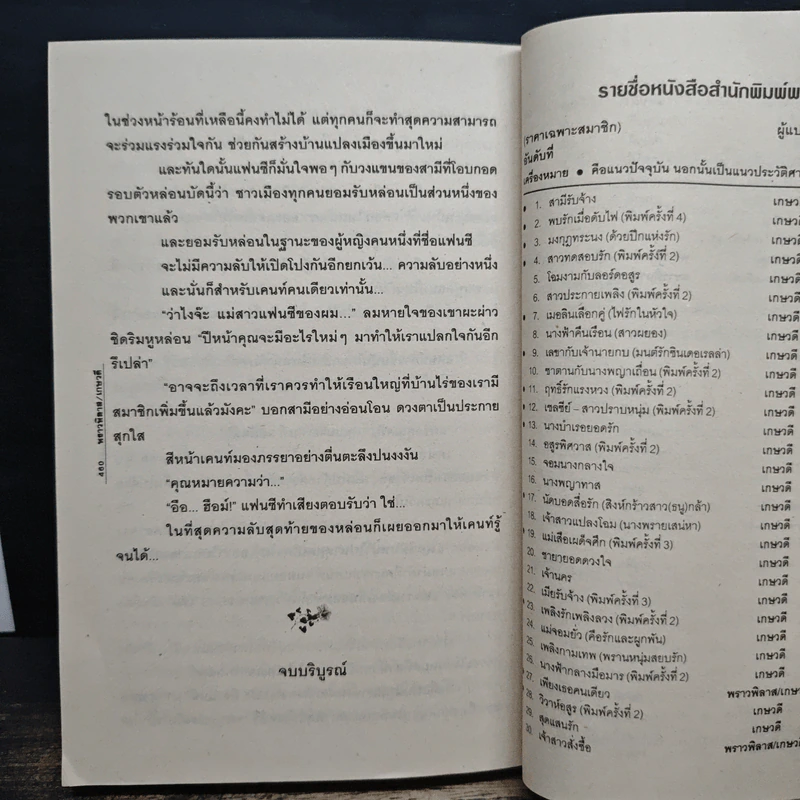 ในช่วงหน้าร้อนที่เหลือนี้คงทำไม่ได้ แต่ทุกคนก็จะทำสุดความสามารถ
จะร่วมแรงร่วมใจกัน ช่วยกันสร้างบ้านแปลงเมืองขึ้นมาใหม่
และทันใดนั้นแฟนซีก็มั่นใจพอๆ กับวงแขนของสามีที่โอบกอด
รอบตัวหล่อนบัดนี้ว่า ชาวเมืองทุกคนยอมรับหล่อนเป็นส่วนหนึ่งของ
พวกเขาแล้ว
และยอมรับหล่อนในฐานะของผู้หญิงคนหนึ่งที่ชื่อแฟนซี
จะไม่มีความลับให้เปิดโปงกันอีกยกเว้น... ความลับอย่างหนึ่ง
และนั่นก็สำหรับเคนท์คนเดียวเท่านั้น...
“ว่าไงจ๊ะ แม่สาวแฟนซีของผม...” ลมหายใจของเขาผะผ่าว
ชิดริมหูหล่อน “ปีหน้าคุณจะมีอะไรใหม่ๆ มาทำให้เราแปลกใจกันอีก
รึเปล่า”
“อาจจะถึงเวลาที่เราควรทำให้เรือนใหญ่ที่บ้านไร่ของเรามี
สมาชิกเพิ่มขึ้นแล้วมังคะ” บอกสามีอย่างอ่อนโอน ดวงตาเป็นประกาย
สุกใส
สีหน้าเคนท์มองภรรยาอย่างตื่นตะลึงปนงงงัน
“คุณหมายความว่า...”
“อือ... ฮึอม์!” แฟนซีทำเสียงตอบรับว่า ใช่...
ในที่สุดความลับสุดท้ายของหล่อนก็เผยออกมาให้เคนท์รู้
จนได้...
จบบริบูรณ์
460 พราวพิลาส/เกษวดี
รายชื่อหนังสือสำนักพิมพ์
(ราคาเฉพาะสมาชิก)
อันดับที่
เครื่องหมาย • คือแนวปัจจุบัน นอกนั้นเป็นแนวประวัติศา
• 1. สามีรับจ้าง เกษว
• 2. พบรักเมื่อดับไฟ (พิมพ์ครั้งที่ 4) เกษวดี
• 3. มงกุฎทระนง (ด้วยปีกแห่งรัก) เกษวดี
• 4. สาวทดสอบรัก (พิมพ์ครั้งที่ 2) เกษวดี
5. โฉมงามกับลอร์ดอสูร เกษวดี
6. สาวประกายเพลิง (พิมพ์ครั้งที่ 2) เกษวดี
• 7. เมอลินเลือกคู่ (ไฟรักในหัวใจ) เกษวดี
• 8. นางฟ้าคืนเรือน (สาวผยอง) เกษวดี
• 9. เลขากับเจ้านายกบ (มนต์รักซินเดอเรลล่า) เกษวดี
10. ซาตานกับนางพญาเถื่อน (พิมพ์ครั้งที่ 2) เกษวดี
• 11. ฤทธิ์รักแรงหวง (พิมพ์ครั้งที่ 2) เกษวดี
• 12. เชลซีย์ – สาวปราบหนุ่ม (พิมพ์ครั้งที่ 2) เกษวดี
• 13. นางบำเรอยอดรัก เกษวดี
14. อสูรพิศวาส (พิมพ์ครั้งที่ 2) เกษวดี
15. จอมนางกลางใจ เกษวดี
16. นางพญาทาส เกษวดี
• 17. นัดบอดสื่อรัก (สิงห์กร้าวสาว(ธนู)กล้า) เกษวดี
18. เจ้าสาวแปลงโฉม (นางพรายเสน่หา) เกษวดี
• 19. แม่เสือเผด็จศึก (พิมพ์ครั้งที่ 3) เกษวดี
20. ชายายอดดวงใจ เกษวดี
21. เจ้านคร เกษวดี
22. เมียรับจ้าง (พิมพ์ครั้งที่ 3) เกษวดี
23. เพลิงรักเพลิงลวง (พิมพ์ครั้งที่ 2) เกษวดี
24. แม่จอมยั่ว (คือรักและผูกพัน) เกษวดี
25. เพลิงกามเทพ (พรานหนุ่มสยบรัก) เกษวดี
26. นางฟ้ากลางมือมาร (พิมพ์ครั้งที่ 2) เกษวดี
• 27. เพียงเธอคนเดียว พราวพิลาส/เกษว
• 28. วิวาห์อสูร (พิมพ์ครั้งที่ 2) เกษวดี
29. สุดแสนรัก เกษวดี
30. เจ้าสาวสั่งซื้อ พราวพิลาส/เกษวดี